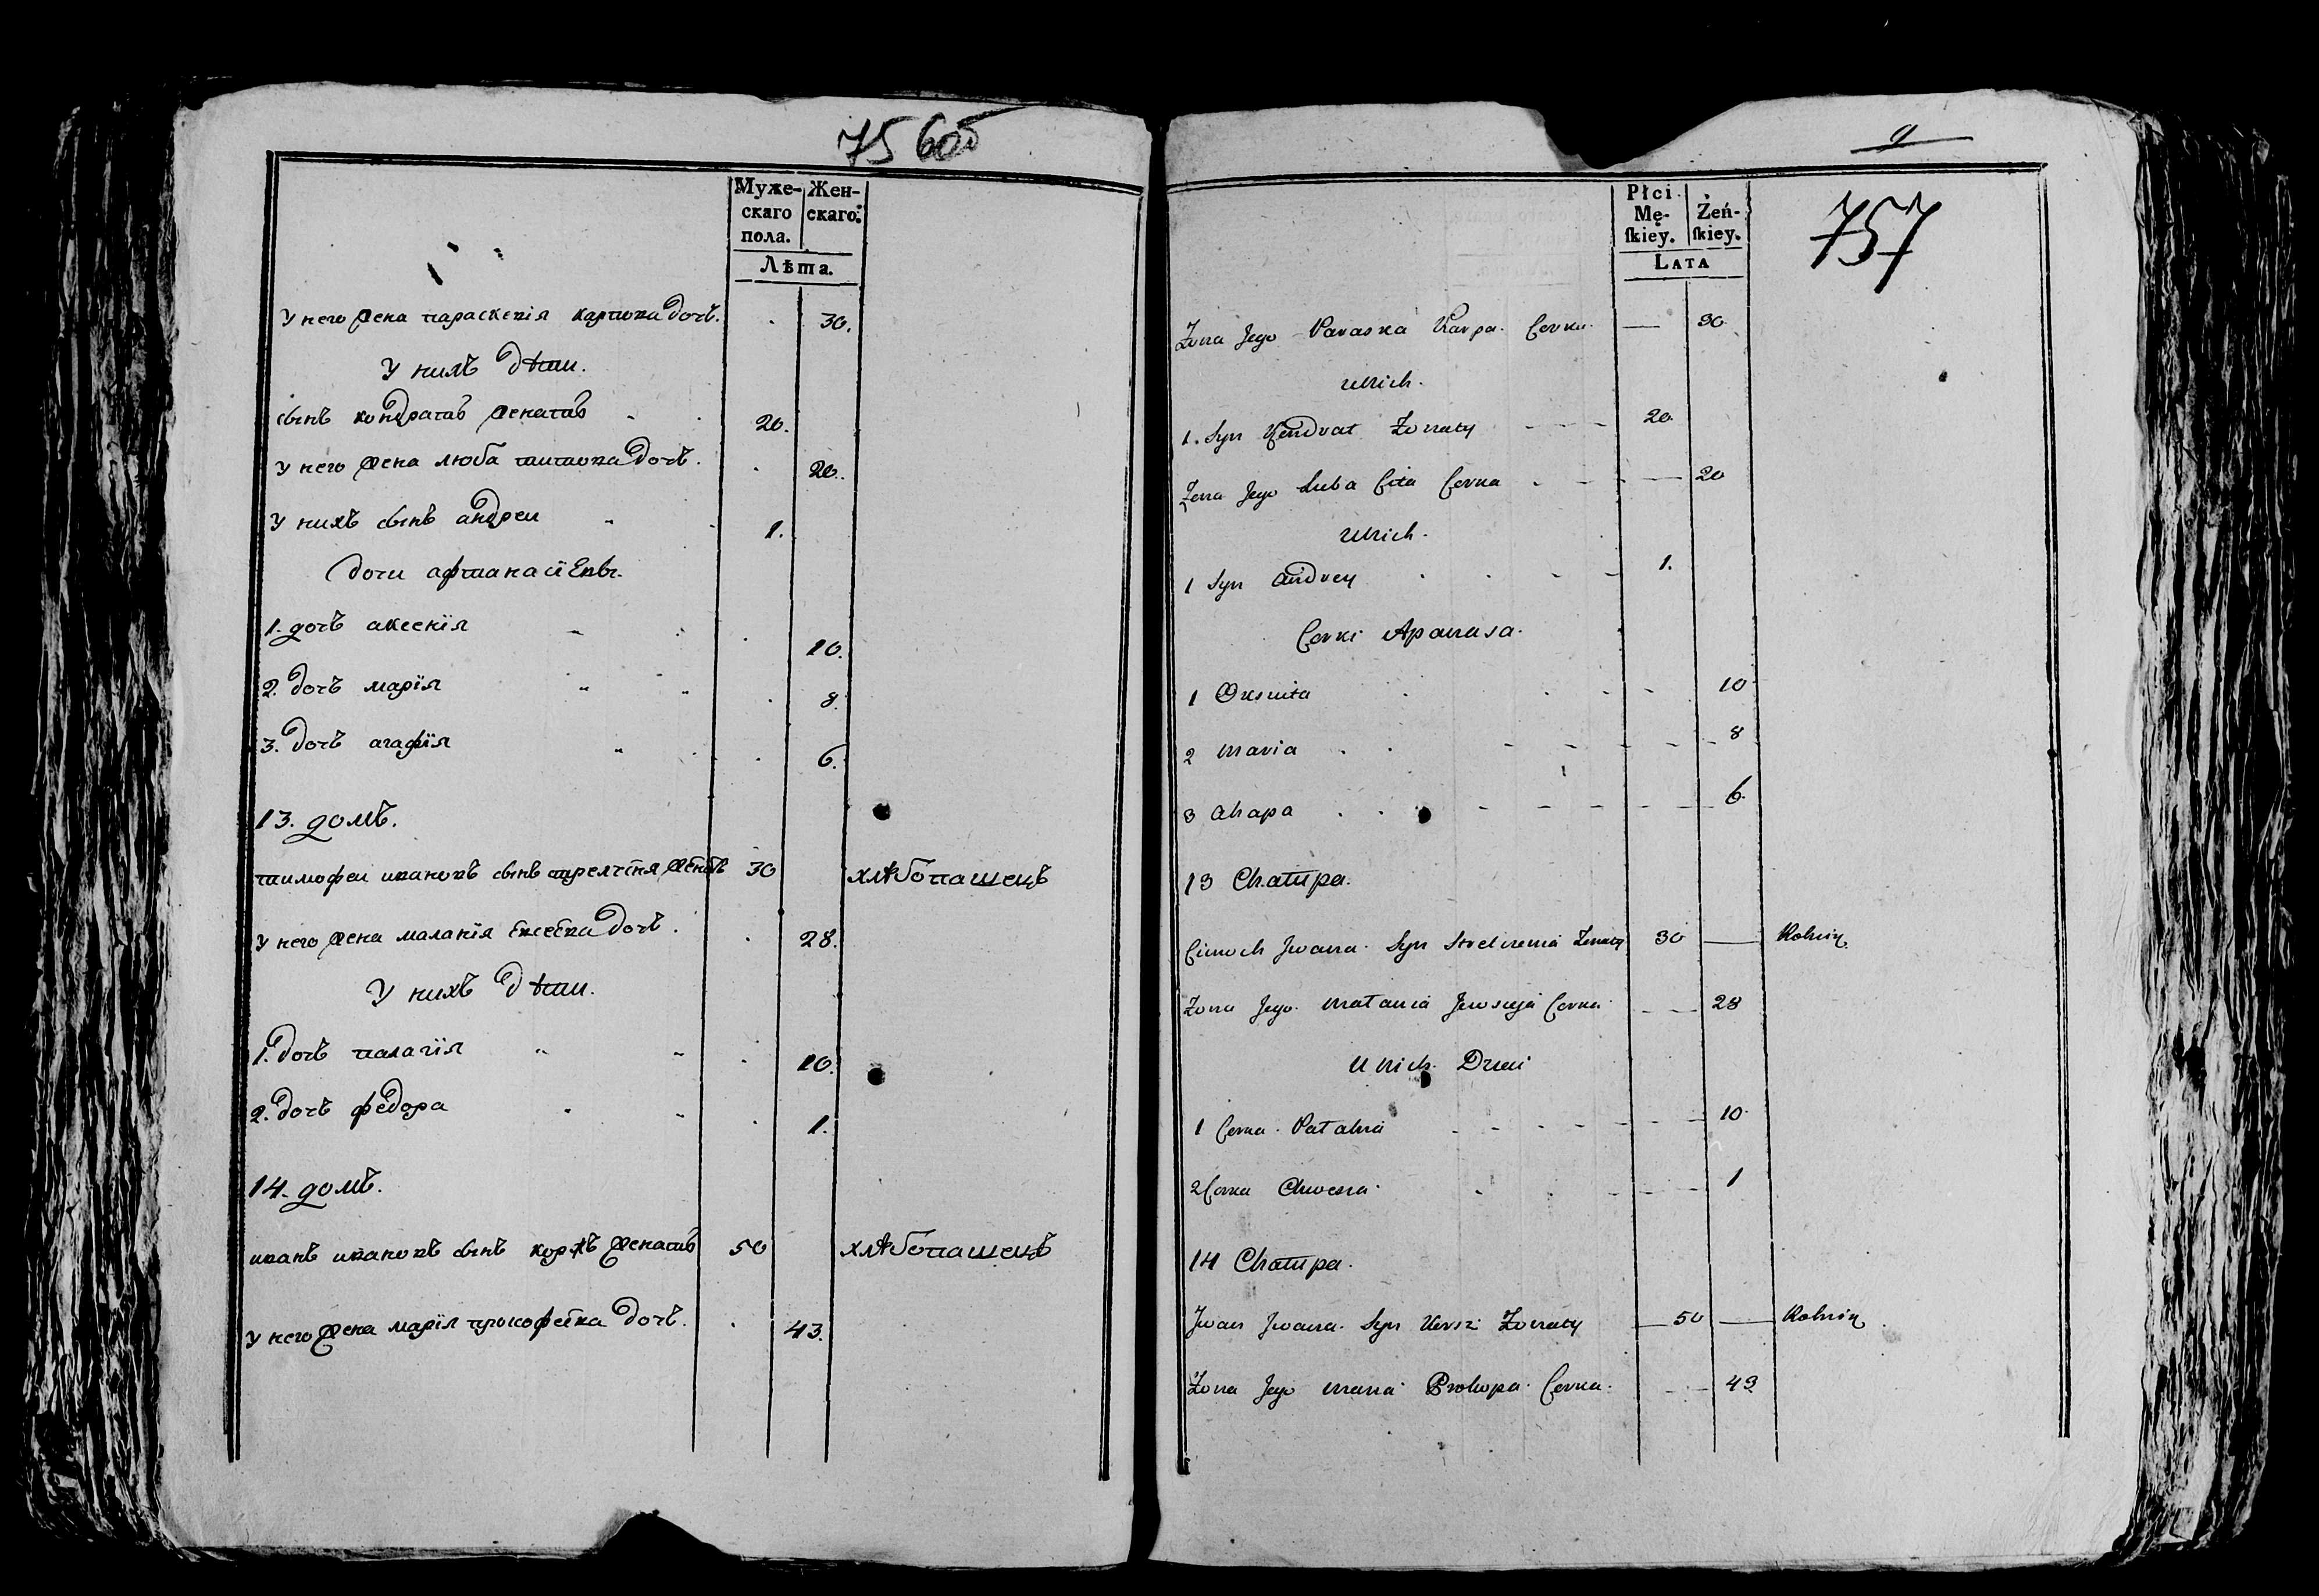 756об
Муже-
скаго
пола.
Жен-
скаго.
Лѣта.
У него жена параскевія карпова дочь. 30.
У нихъ дѣти.
сынъ кондратъ женатъ 20.
У него жена люба титова дочь. 20.
У нихъ сынъ андреи 1.
Дочи афанасіевы.
1. дочь аксенія 10.
2. дочь марія 8.
3. дочь агафія 6.
13. домъ.
тимофеи ивановъ сынъ женатъ 30 хлѣбопашецъ
У него жена маланія дочь. 28.
У нихъ дѣти.
1. дочь палагія 10.
2. дочь федора 1.
14. домъ.
иванъ ивановъ сынъ коржъ женатъ 50 хлѣбопашецъ
У него жена марія прокофева дочь. 43.
9
Płci
Mę-
ſkiey.
Żeń-
ſkiey.
Lata
757
Żona Jego Paraska Karpa Corka 30
U nich.
1. Syn Kondrat Żonaty 20
Żona Jego Luba Cita Corka 20
U nich.
1 Syn Andrey 1.
Corki Apanasa.
1 10
2 Maria 8
3 Ahapa 6
13 Chałupa.
Cimoch Jwana Syn Żonaty 30 Rolnik
Żona Jego Małania Corka 28
U nich Dzieci
1 Corka Pałahia 10
2 Corka 1
14 Chałupa.
Jwan Jwana Syn Korsz Żonaty 50 Rolnik
Żona Jego Maria Prokopa Corka. 43